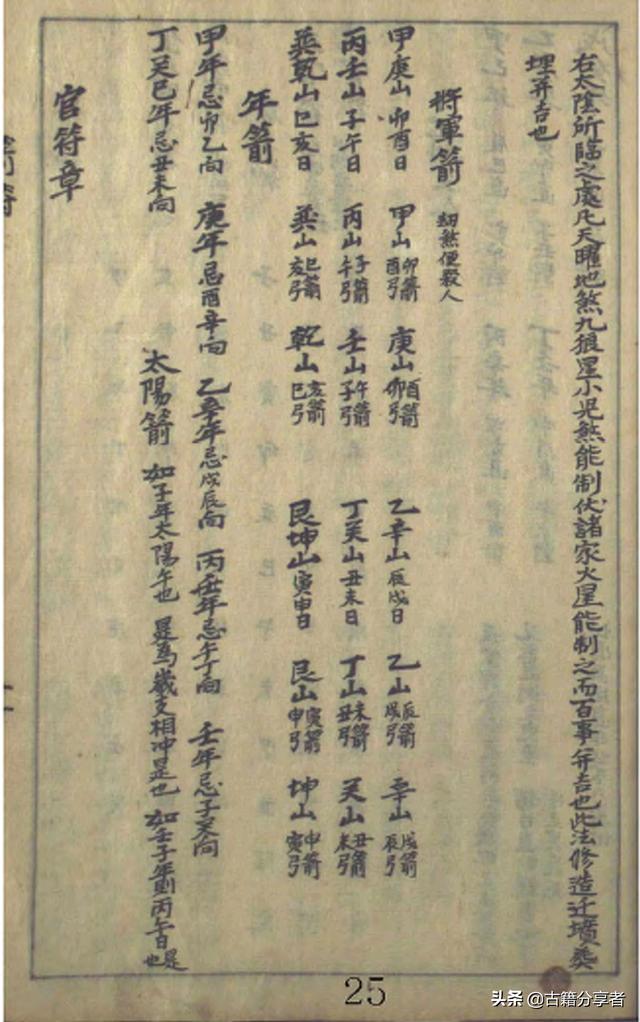 右太陰所临之處凡天曜地煞九狼星小児煞能制伏諸家火星能制之而百事并吉也此法修造迁墳葬
埋并吉也
將軍箭 劫煞便殺人
甲庚山卯酉日 甲山卯箭酉弓 庚山酉箭卯弓 乙辛山辰戌日 乙山辰箭戌弓 辛山戌箭辰弓
丙壬山子午日 丙山子箭午弓 壬山午箭子弓 丁癸山丑未日 丁山未箭丑弓 癸山丑箭未弓
巽乾山巳亥日 巽山巳箭亥弓 乾山亥箭巳弓 艮坤山寅申日 艮山寅箭申弓 坤山申箭寅弓
年箭
甲年忌卯乙向 庚年忌酉辛向 乙辛年忌戌辰向 丙壬年忌午丁向 壬年忌子癸向
丁癸巳年忌丑未向 太陽箭 如子年太陽午也 是為歲支相冲是也 如壬子年則丙午日是也
官符章
25
头条 @古籍分享者